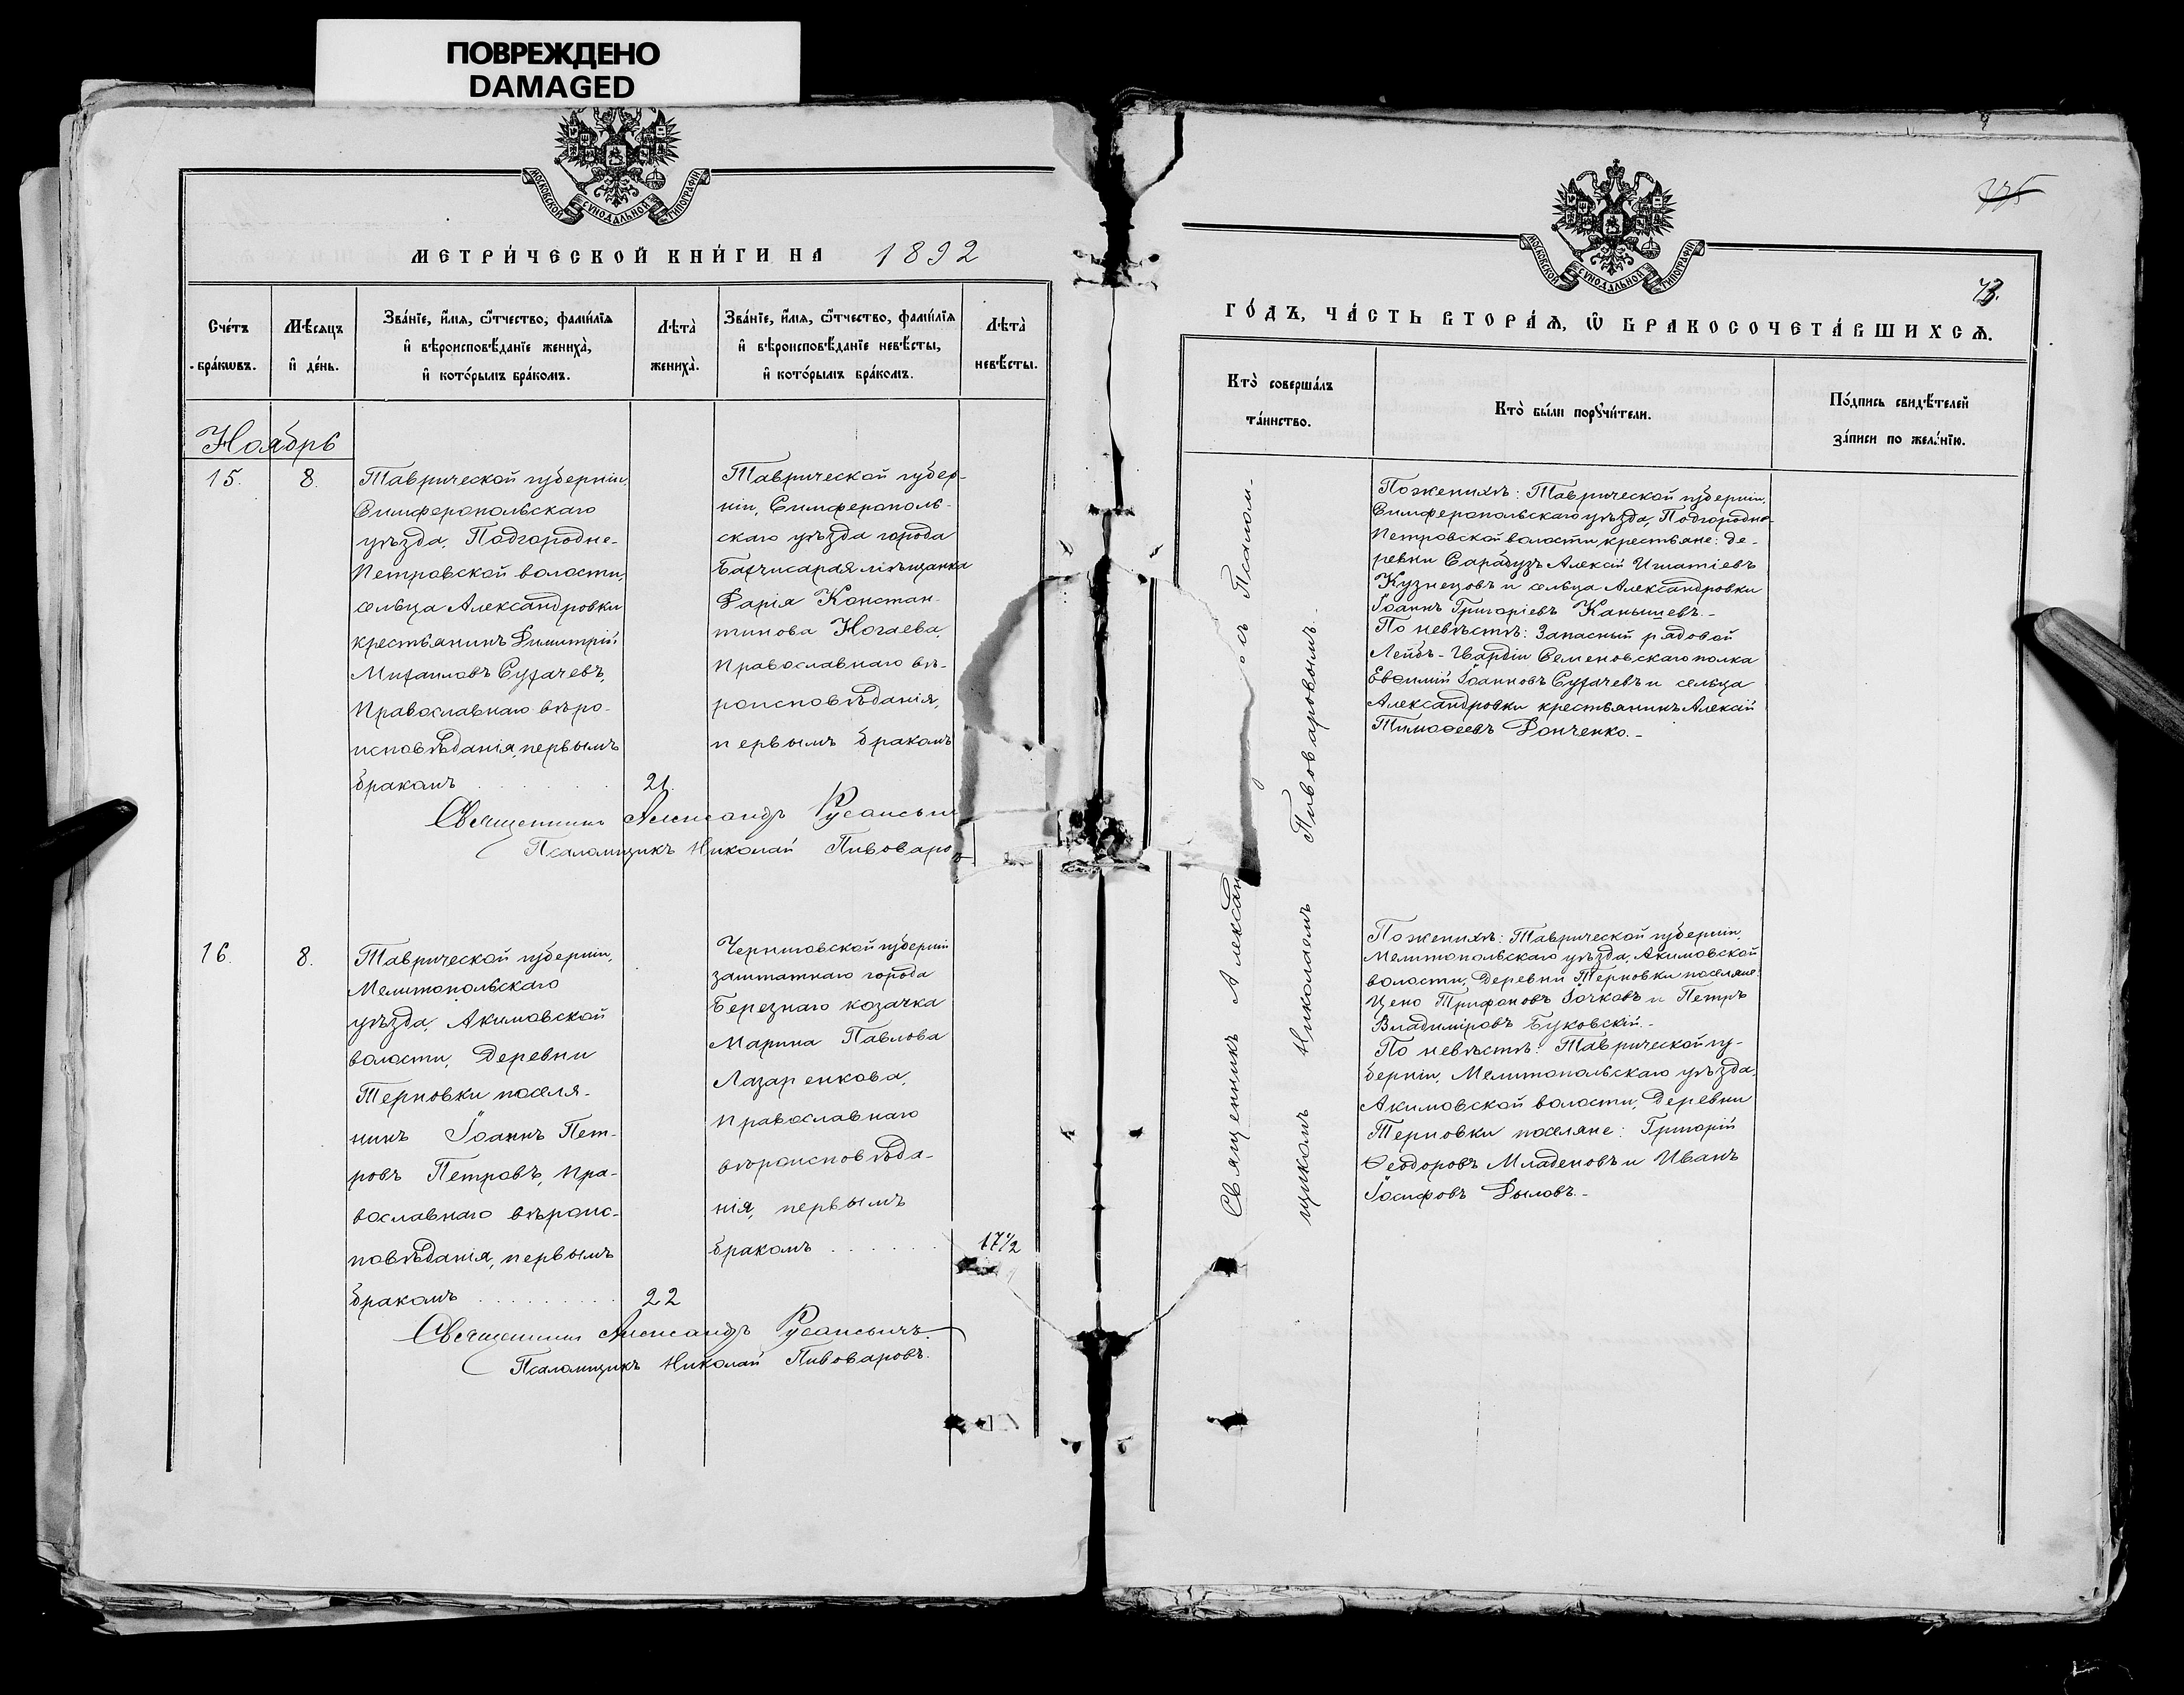 ПОВРЕЖДЕНО
DAMAGED
МОСКОВСКОЙ СѴНОДАЛЬНОЙ ТИПОГРАФІИ
МЕТРИ́ЧЕСКОЙ КНИ́ГИ НА 1892
Сче́тъ бра́кѡвъ.
Мѣ́сяцъ и҆ де́нь.
Зва́нїе, и҆́мѧ, ѻ҆́тчество, фами́лїѧ
и҆ вѣроисповѣ́данїе жениха̀,
и҆ кото́рымъ бра́комъ.
Лѣта̀ жениха̀.
Зва́нїе, и҆́мѧ, ѻ҆́тчество, фами́лїѧ
и҆ вѣроисповѣ́данїе невѣ́сты,
и҆ кото́рымъ бра́комъ.
Лѣта̀ невѣ́сты.
Ноябрь
15.
8.
Таврической губерніи,
Симферопольскаго
уѣзда, Подгородне-
Петровской волости,
сельца Александровки
крестьянинъ Димитрій
Михаиловъ Сухачевъ,
Православнаго вѣро-
исповѣданія, первымъ
бракомъ
21.
Таврической губер-
ніи, Симферополь-
скаго уѣзда города
Бахчисарая мѣщанка
Дарія Констан-
тинова Ногаева,
Православнаго вѣ-
роисповѣданія,
первымъ бракомъ
Священникъ Александръ
Псаломщикъ Николай Пивоваро
16.
8.
Таврической губерніи,
Мелитопольскаго
уѣзда, Акимовской
волости, Деревни
Терновки поселя-
нинъ Іоаннъ Пет-
ровъ Петровъ, Пра-
вославнаго вѣроис-
повѣданія, первымъ
бракомъ
22
Черниговской губерніи
заштатнаго города
Березнаго козачка
Марина Павлова
Лазаренкова,
Православнаго
вѣроисповѣда-
нія, первымъ
бракомъ
17½
Священникъ Александръ
Псаломщикъ Николай Пивоваровъ.
МОСКОВСКОЙ СѴНОДАЛЬНОЙ ТИПОГРАФІИ
43.
ГО́ДЪ, ЧА́СТЬ ВТОРА́Ѧ, Ѡ҆ БРАКОСОЧЕТА́ВШИХСѦ.
Кто̀ соверша́лъ
та́инство.
Кто̀ бы́ли порꙋчи́тели.
По́дпись свидѣ́телей
за́писи по жела́нїю.
Священникъ Алексан съ Псалом-
щикомъ Николаемъ Пивоваровымъ
По женихѣ: Таврической губерніи,
Симферопольскаго уѣзда, Подгородне-
Петровской волости крестьяне: де-
ревни Сарабузъ Алексій Игнатіевъ
Кузнецовъ и сельца Александровки
Іоаннъ Григоріевъ Канышевъ.-
По невѣстѣ: Запасный рядовой
Лейбъ-Гвардіи Семеновскаго полка
Евѳимій Іоанновъ Сухачевъ и сельца
Александровки крестьянинъ Алексій
Тимоѳеевъ Донченко.-
По женихѣ: Таврической губерніи,
Мелитопольскаго уѣзда, Акимовской
волости, Деревни Терновки поселяне:
Цено Трифоновъ Гочковъ и Петръ
Владиміровъ Буковскій.-
По невѣстѣ: Таврической гу-
берніи, Мелитопольскаго уѣзда,
Акимовской волости, Деревни
Терновки поселяне: Григорій
Ѳеодоровъ Младеновъ и Иванъ
Іосифовъ Дыловъ.-